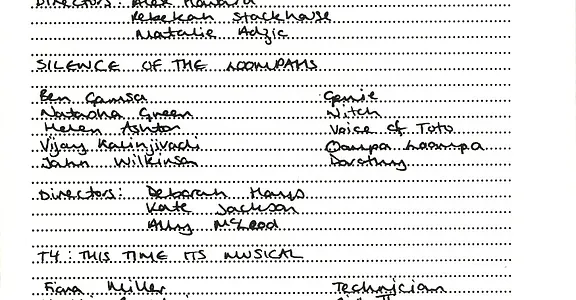 Directors: Alex
Rebekah Stackhouse
Natalie Adzic
SILENCE OF THE LOOMPAHS
Ben Gamsa Genie
Natasha Green Witch
Helen Ashton Voice of Toto
Vijay Kalinjivadi Oompa Loompa
John Wilkinson Dorothy
Directors: Deborah Hays
Kate Jackson
Ally McLeod
T4: THIS TIME ITS MUSICAL
Fiona Miller Technician